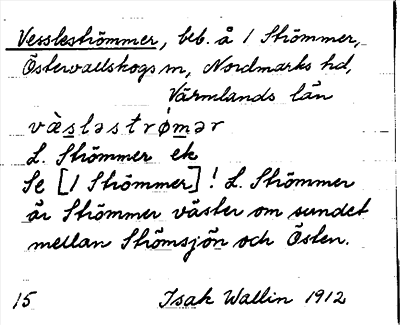 Vesslestrømmer, beb. å 1 Strömmer,
Östervallskogs sn, Nordmarks hd,
Värmlands län
vàs̲ləstrǿm̲ər
L. Strömmer ek
Se [1 Strömmer]! L. Strömmer
är Strömmer väster om sundet
mellan Strömsjön och Östen.
15 Isak Wallin 1912